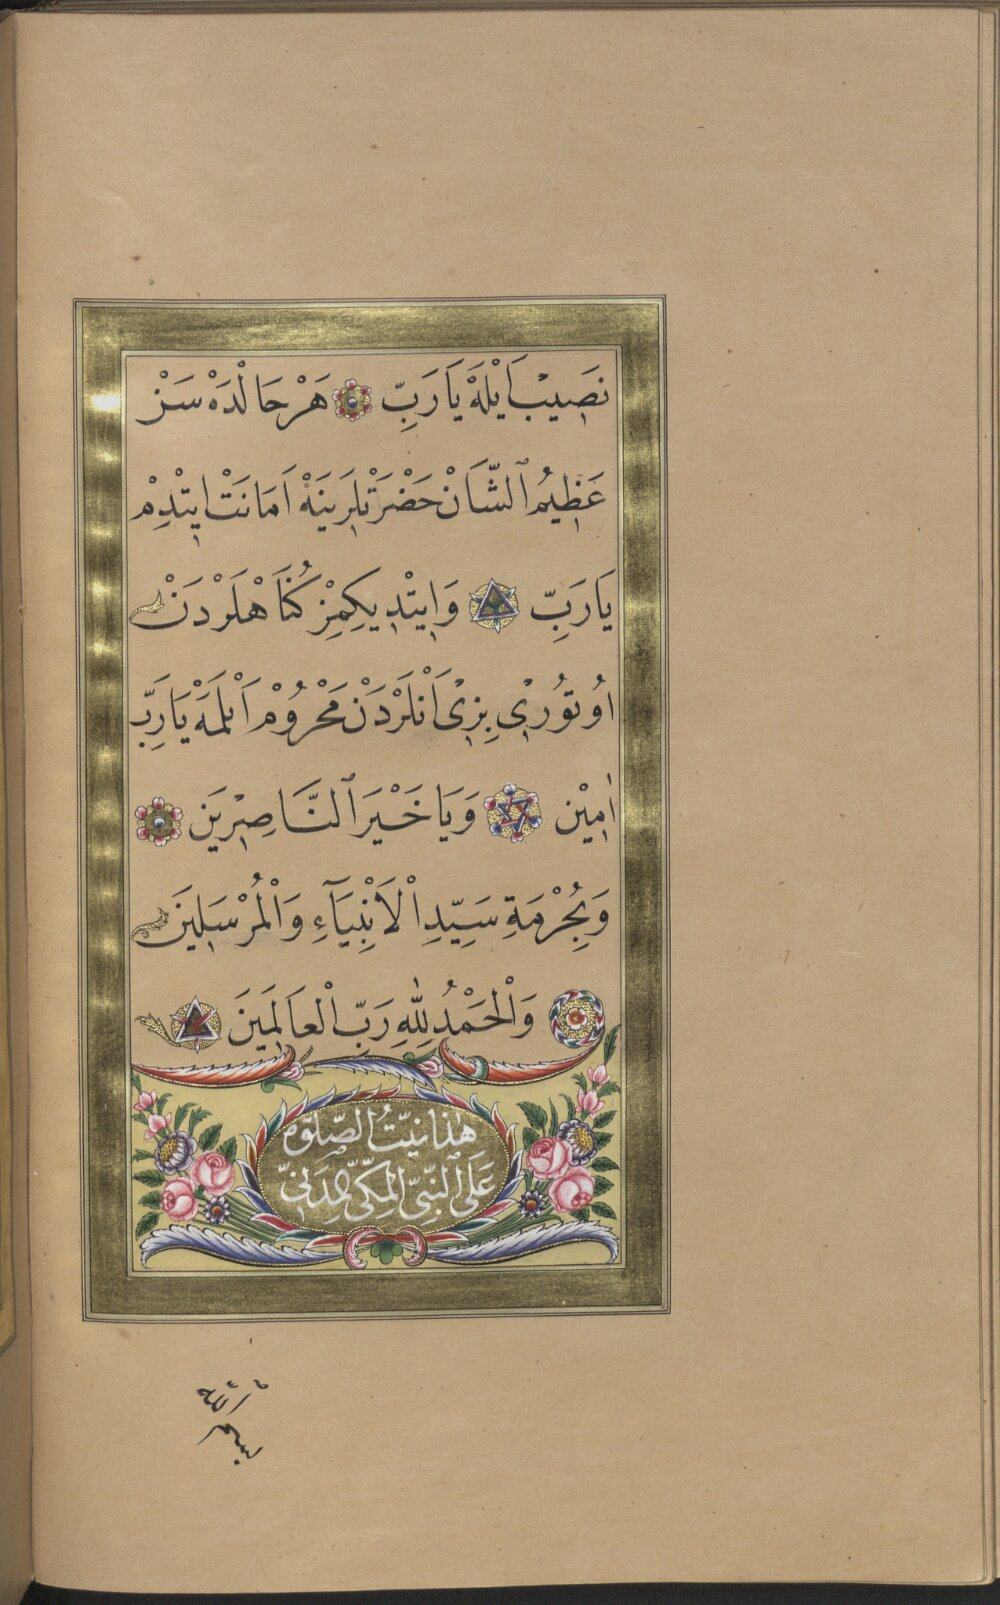 نَصِيبْ اَيْلَهْ يَا رَبِّ هَرْ حَالْدَهْ سَنْ
عَظِيمُ ٱلشَّانْ حَضْرَتْلَرِينَهْ اَمَانَتْ اِيتْدِمْ
يَا رَبِّ وَاِيتْدِيكِمِزْ كُنَاهْلَرْدَنْ
اُوتُورِي بِزِي اَنْلَرْدَنْ مَحْرُومْ اَيْلَمَهْ يَا رَبِّ
اٰمِيْن وَيَا خَيْرَ ٱلنَّاصِرِيَن
وَبِحُرْمَةِ سَيِّدِ اْلاَنْبِيَآءِ وَاْلمُرْسَلِينَ
وَاْلحَمْدُ لِلّٰهِ رَبِّ اْلعَالَمَِينَ
هٰذَا نِيَّتُ الصَّلٰوةِ
عَلَى ٱلنَّبِيِّ الْمَكِّيِّ الْمَدَنِيِّ
بسم الله